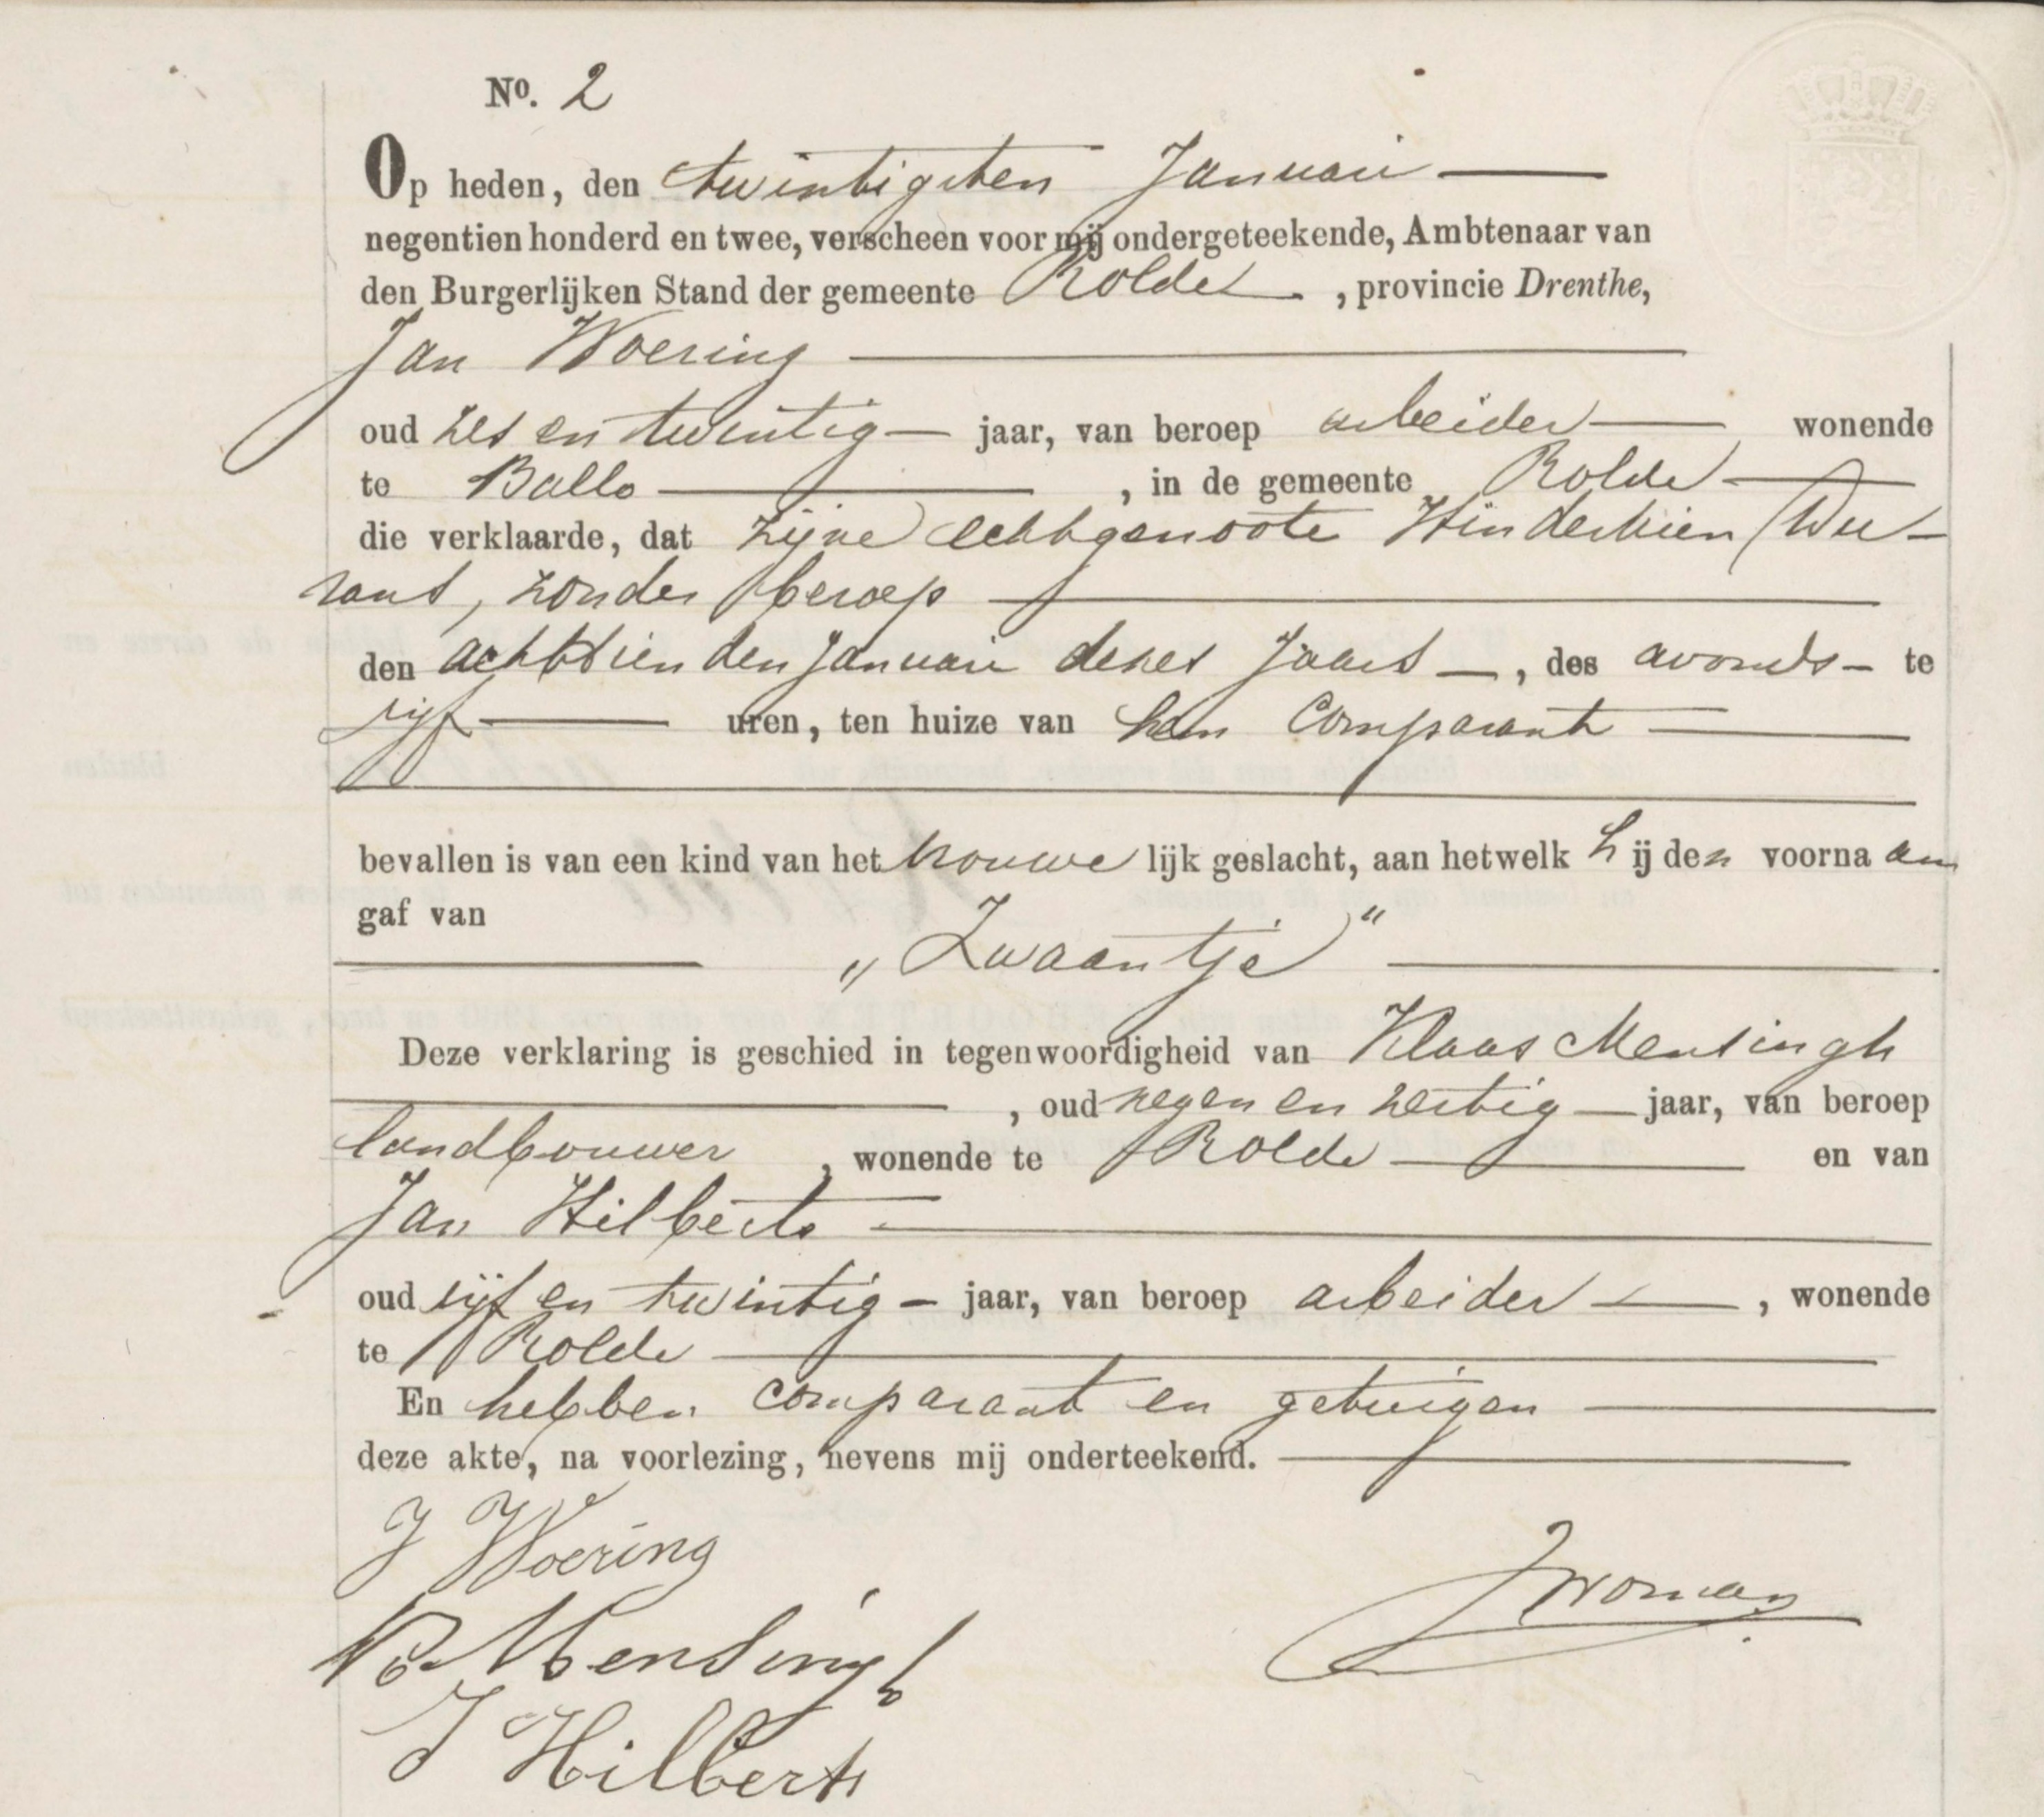 No. 2
Op heden, den twintigsten Januari
negentien honderd en twee, verscheen voor mij ondergeteekende, Ambtenaar van
den Burgerlijken Stand der gemeente Rolde, provincie Drenthe,
Jan Woering
oud zes en twintig jaar, van beroep arbeider wonende
te Ballo, in de gemeente Rolde
die verklaarde, dat zijne echtgenoote Hinderkien Wu-
rans, zonder beroep
den achttienden Januari dezes jaars, des avonds te
vijf uren, ten huize van hem Comparant
bevallen is van een kind van het vrouwelijk geslacht, aan hetwelk hij den voornaam
gaf van
„Zwaantje”
Deze verklaring is geschied in tegenwoordigheid van Klaas Mensingh
, oud negen en zestig jaar, van beroep
landbouwer, wonende te Rolde en van
Jan Hilberts
oud vijf en twintig jaar, van beroep arbeider, wonende
te Rolde
En hebben comparant en getuigen
deze akte, na voorlezing, nevens mij onderteekend.
J Woering
K Mensingh
J Hilberts